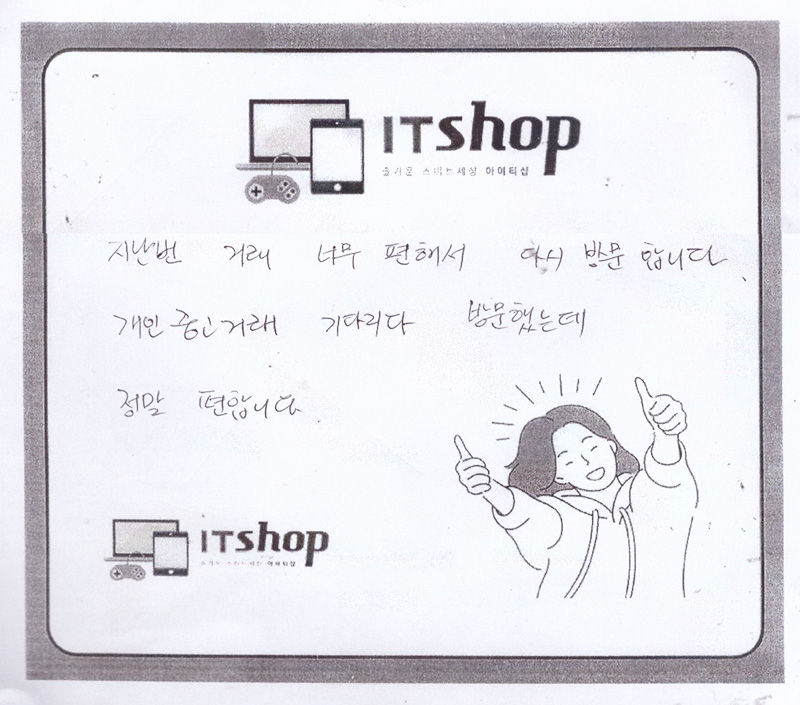 ITshop
즐거운 스마트세상 아이티샵
지난번 거래 너무 편해서 다시 방문 합니다
개인 중고거래 기다리다 방문했는데
정말 편합니다
ITshop
즐거운 스마트세상 아이티샵